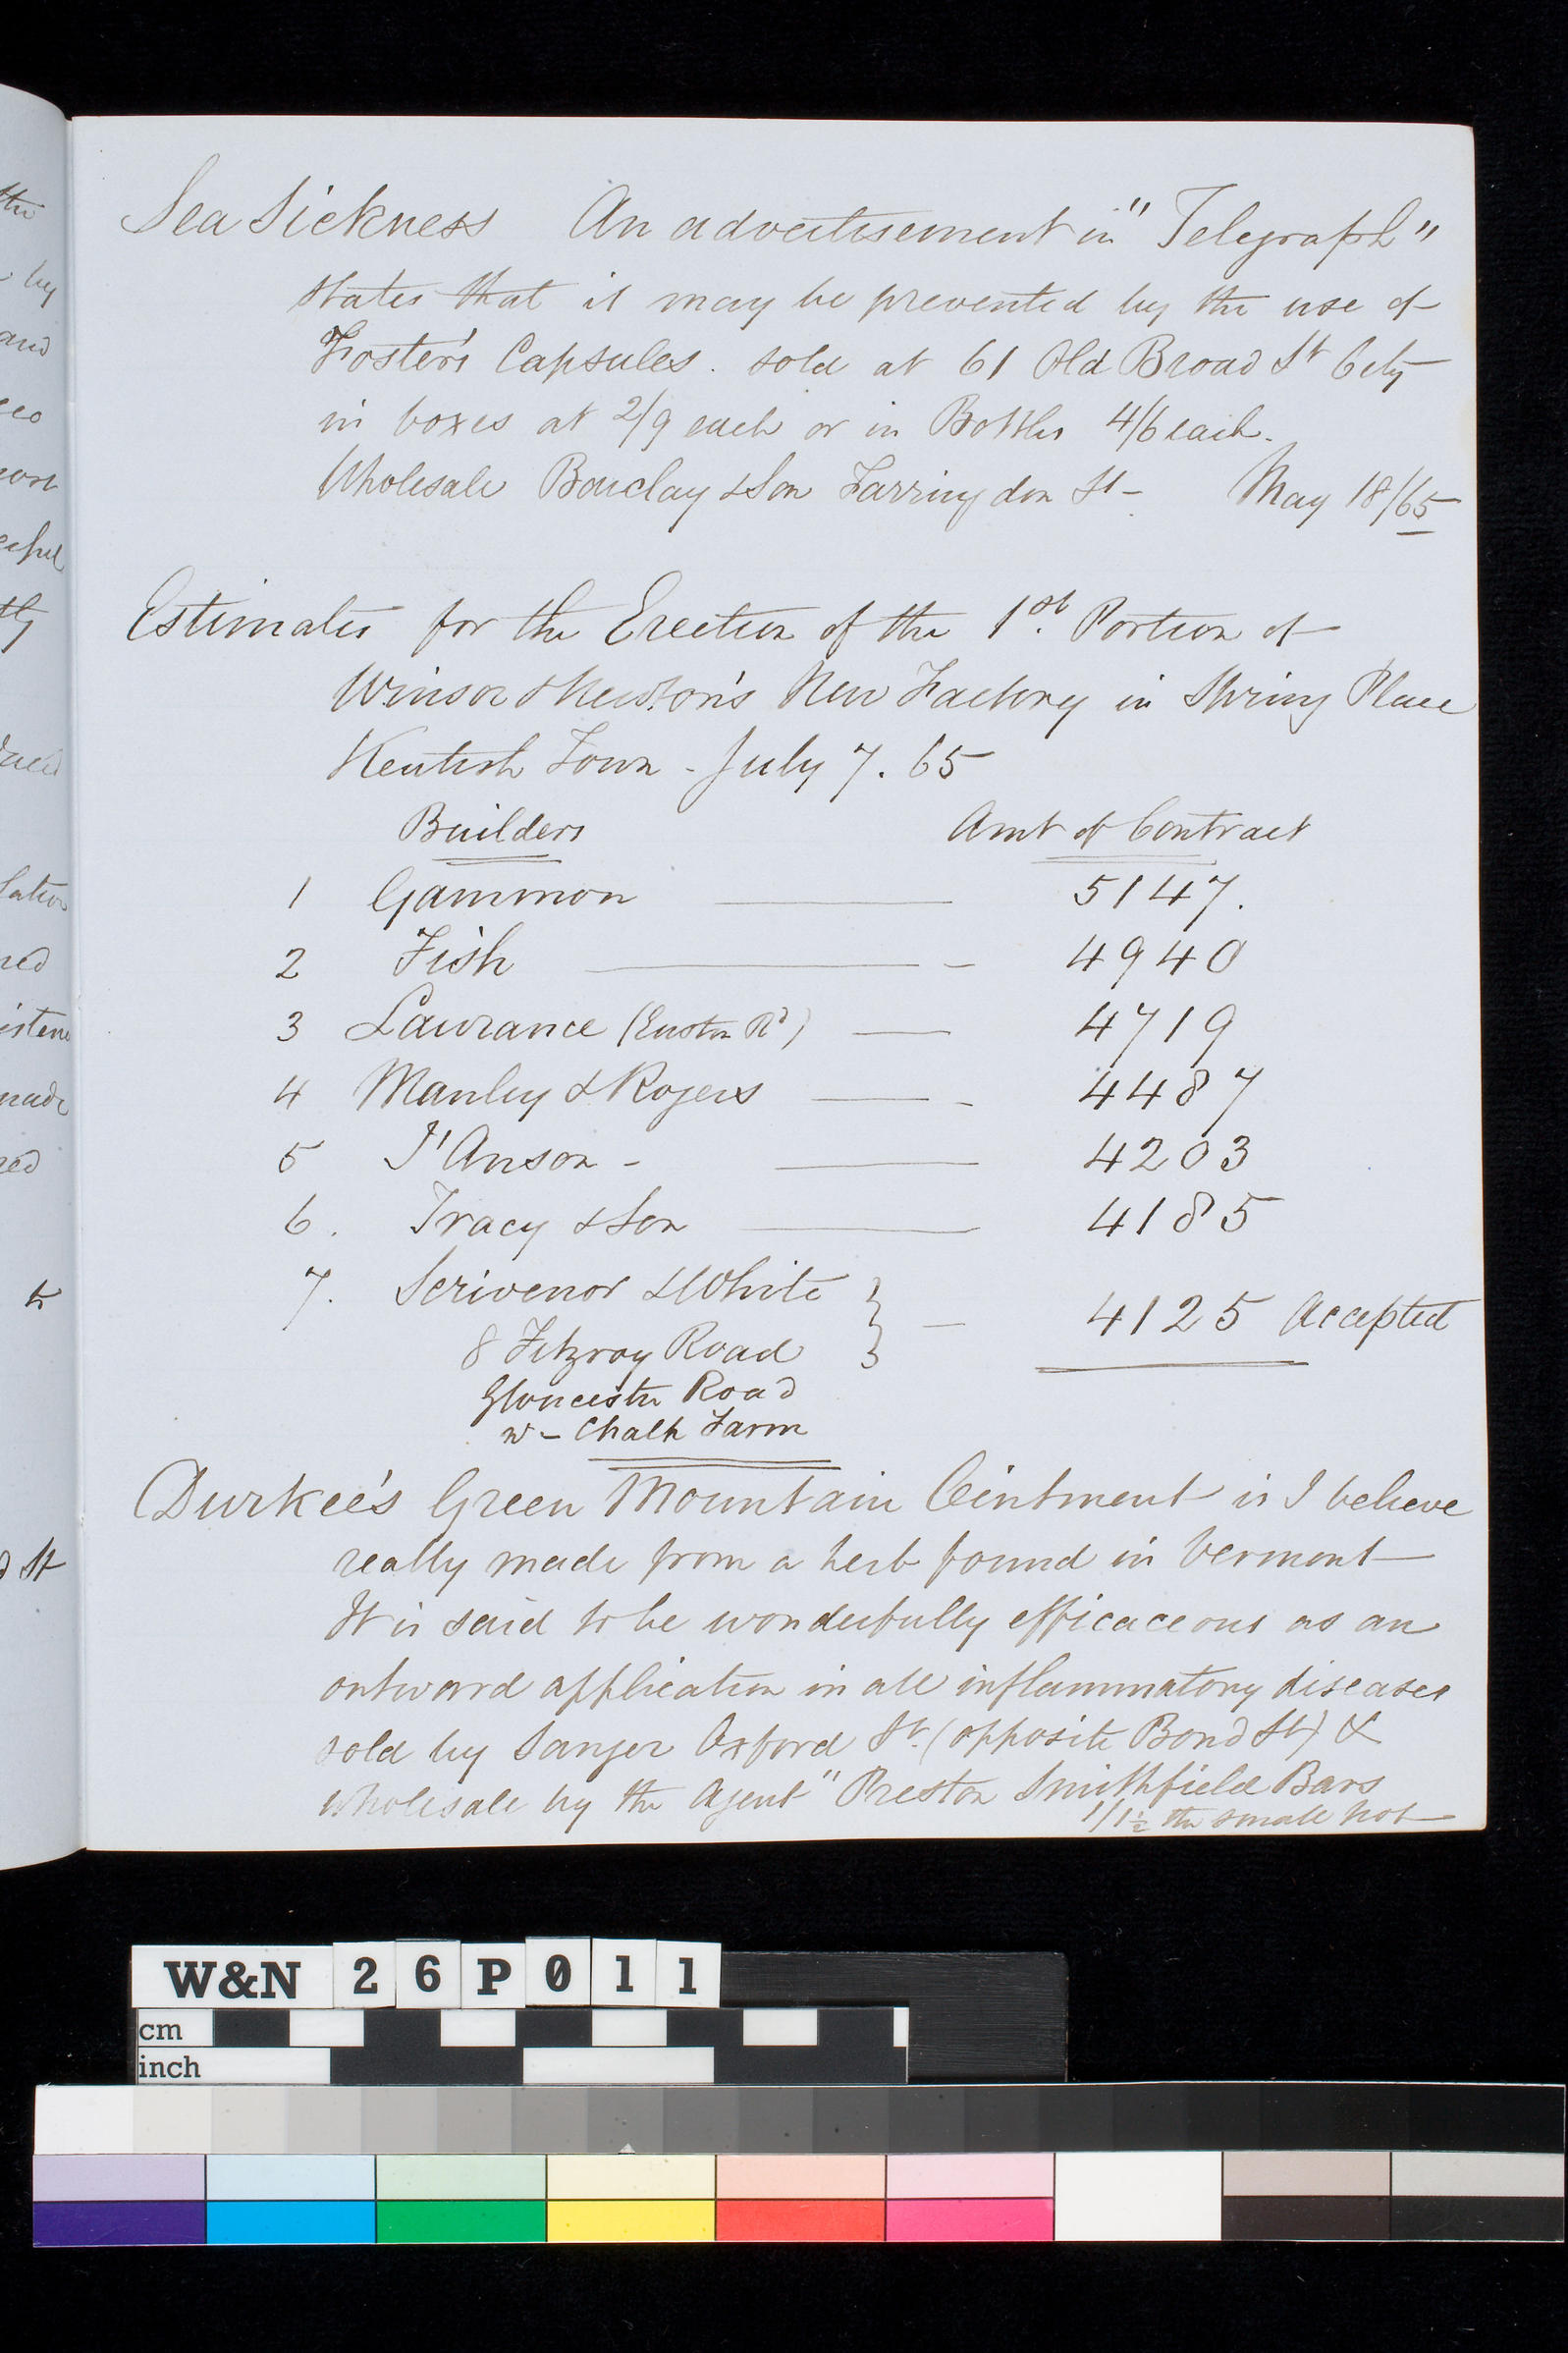 Sea Sickness An advertisement in "Telegraph"
states that it may be prevented by the use of
Foster's Capsules. sold at 61 Old Broad St City
in boxes at 2/9 each or in Bottles 4/6 each.
Wholesale Barclay & Son Farringdon St - May 18/65
Estimates for the Erection of the 1st. Portion of
Winsor & Newton's New Factory in Spring Place
Kentish Town - July 7. 65
Builders Amt of Contract
1 Gammon 5147.
2 Fish 4940
3 Lawrance (Euston Rd) 4719
4 Manley & Rogers 4487
5 I'Anson - 4203
6. Tracy & Son 4185
7. Scrivenor & White
8 Fitzroy Road } - 4125 Accepted
Gloucester Road
N - Chalk Farm
Durkee's Green Mountain Ointment is I believe
really made from a herb found in Vermont
It is said to be wonderfully efficaceous as an
outward application in all inflammatory diseases
sold by Sanger Oxford St. (opposite Bond St) &
wholesale by the Agent" Preston Smithfield Bars
1/1½ the small pot
the
by
and
ful
red
made
red
to
d St
W&N 26P011
cm
inch